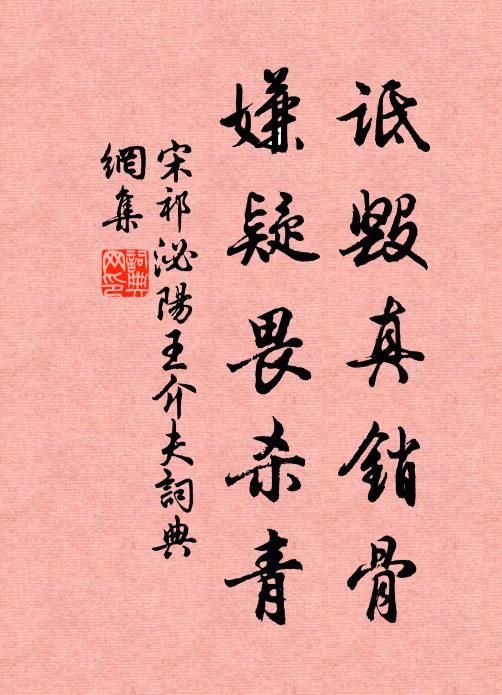 詆毀真銷骨
嫌疑畏杀青
宋祁泌陽王介夫詞典
網集
詞典
网印